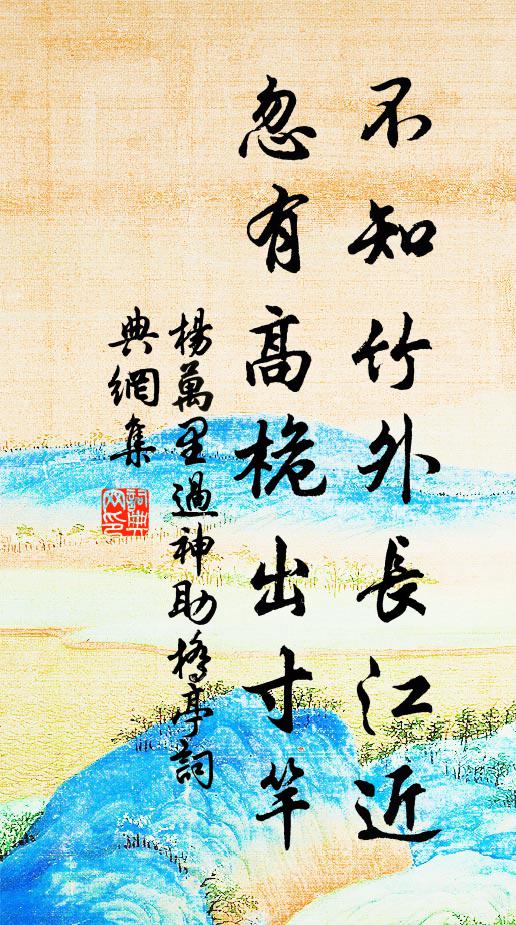 不知竹外長江近
忽有高桅出寸竿
楊萬里過神助橋亭詞
典網集
詞典網印